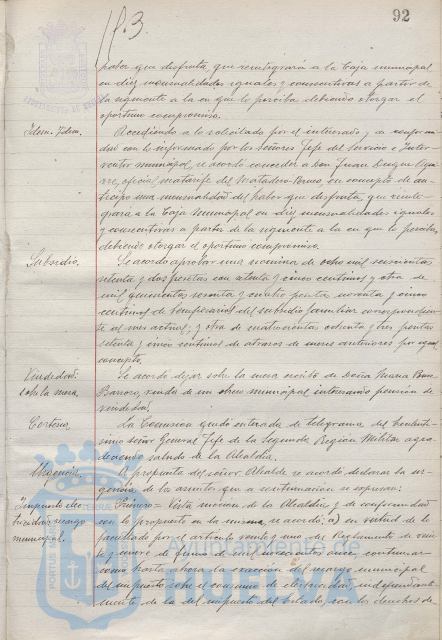 92
haber que disfruta, que reintegrará a la Caja municipal
en diez mensualidades iguales y consecutivas a partir de
la siguiente a la en que lo perciba debiendo otorgar el
oportuno compromiso.
Idem. Idem. Accediendo a lo solicitado por el interesado y de confor-
midad con lo informado por los Señores Jefe del Servicio e Inter-
ventor municipal, se acordó conceder a Don Juan Duque
oficial matarife del Matadero Público, en concepto de an-
ticipo una mensualidad del haber que disfruta, que reinte-
grará a la Caja Municipal en diez mensualidades iguales
y consecutivas a partir de la siguiente a la en que lo perciba,
debiendo otorgar el oportuno compromiso.
Subsidio. Se acordó aprobar una nómina de ocho mil seiscientas
setenta y dos pesetas con setenta y cinco céntimos y otra de
mil quinientas sesenta y cuatro pesetas noventa y cinco
céntimos de beneficiarios del subsidio familiar correspondien-
te al mes actual; y otra de cuatrocientas ochenta y tres pesetas
setenta y cinco céntimos de atrasos de meses anteriores por igual
concepto.
sobre la mesa. Se acordó dejar sobre la mesa escrito de Doña María
Barroso, viuda de un obrero municipal interesando pensión de
viudedad.
Cortesía. La Comisión quedó enterada de telegrama del Excelentí-
simo Señor General Jefe de la Segunda Región Militar agra-
deciendo saludo de la Alcaldía.
Urgencia. A propuesta del señor Alcalde se acordó declarar la ur-
gencia de los asuntos que a continuación se expresan:
Impuesto elec-
tricidad; recargo
municipal. Primero = Vista moción de la Alcaldía y de conformidad
con lo propuesto en la misma, se acordó: a) en virtud de lo
facultado por el artículo veinte y uno del Reglamento de vein-
te y nueve de junio de mil novecientos once, continuar
como hasta ahora la exacción del recargo municipal
del impuesto sobre el consumo de electricidad, independiente-
mente de la del impuesto del Estado, con los derechos de
HUELVA